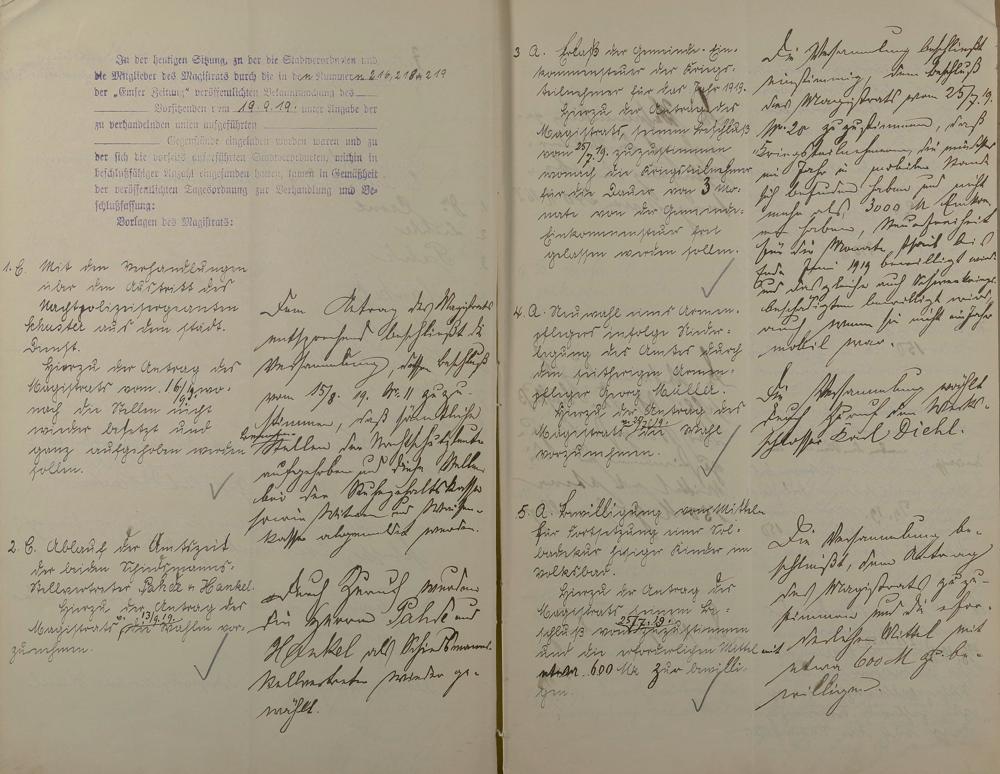 In der heutigen Sitzung, zu der die Stadtverordneten und
die Mitglieder des Magistrats durch die in den Nummern 216, 218 u 219
der „Emser Zeitung“ veröffentlichten Bekanntmachung des
Vorsitzenden vom 19.9.19. unter Angabe der
zu verhandelnden unten aufgeführten
Gegenstände eingeladen worden waren und zu
der sich die vorseits aufgeführten Stadtverordneten, mithin in
beschlußfähiger Anzahl eingefunden hatten, kamen in Gemäßheit
der veröffentlichten Tagesordnung zur Verhandlung und Be-
schlußfassung:
Vorlagen des Magistrats:
1. C. Mit den Verhandlungen
über den Austritt des
Nachtpolizeisergeanten
Schuster aus dem städt.
Dienst.
Hierzu der Antrag des
Magistrats vom 16/9. wo-
nach die Stellen nicht
wieder besetzt und
ganz aufgehoben werden
sollen.
Dem Antrag des Magistrats
entsprechend beschließt die
Versammlung, dem Beschluß
vom 15/8. 19. Nr. 11 zuzu-
stimmen, daß sämtliche
Stellen der Nachtschutzleute
aufgehoben und diese Stellen
bei der Ruhegehaltskasse
sowie Witwen u Waisen-
kasse abgemeldet werden.
2. C. Ablauf der Amtszeit
der beiden Schiedsmanns-
Stellvertreter Pahde u Hankel.
Hierzu der Antrag des
Magistrats v. 13/9.19. die Wahlen vor-
zunehmen.
Durch Zuruf wurden
die Herren Pahde und
Hankel als Schiedsmanns-
Stellvertreter wieder ge-
wählt.
3 A. Erlaß der Gemeinde-Ein-
kommensteuer der Kriegs-
teilnehmer für das Jahr 1919.
Hierzu der Antrag des
Magistrats, seinem Beschluß
vom 25/7. 19. zuzustimmen
wonach die Kriegsteilnehmer
für die Dauer von 3 Mo-
nate von der Gemeinde-
Einkommensteuer frei
gelassen werden sollen.
Die Versammlung beschließt
einstimmig, dem Beschluß
des Magistrats vom 25/7. 19.
Nr. 20 zuzustimmen, daß
Kriegsteilnehmern, die mindestens
ein Jahr in mobilen Stand
sich befunden haben und nicht
mehr als 3000 M Einkom-
men haben, Steuerfreiheit
für die Monate April bis
Ende Juni 1919 bewilligt wird
und das gleiche auch Schwerkriegs-
beschädigten bewilligt wird,
auch wenn sie nicht ein Jahr
mobil war.
4. A. Neuwahl eines Armen-
pflegers infolge Nieder-
legung des Amtes durch
den seitherigen Armen-
pfleger Georg Müller.
Hierzu der Antrag des
Magistrats die Wahl
vorzunehmen.
Die Versammlung wählt
durch Zuruf den Werk-
schlosser Karl Diehl.
5. A. Bewilligung von Mitteln
für Fortsetzung einer Sol-
badekur hiesiger Kinder im
Volksbad.
Hierzu der Antrag des
Magistrats seinem Be-
schluß vom 25/7. 19. zuzustimmen
und die erforderlichen Mittel mit
etwa 600 Mk zu bewilli-
gen.
Die Versammlung be-
schließt, dem Antrag
des Magistrats zuzu-
stimmen und die erfor-
derlichen Mittel mit
etwa 600 M zu be-
willigen.